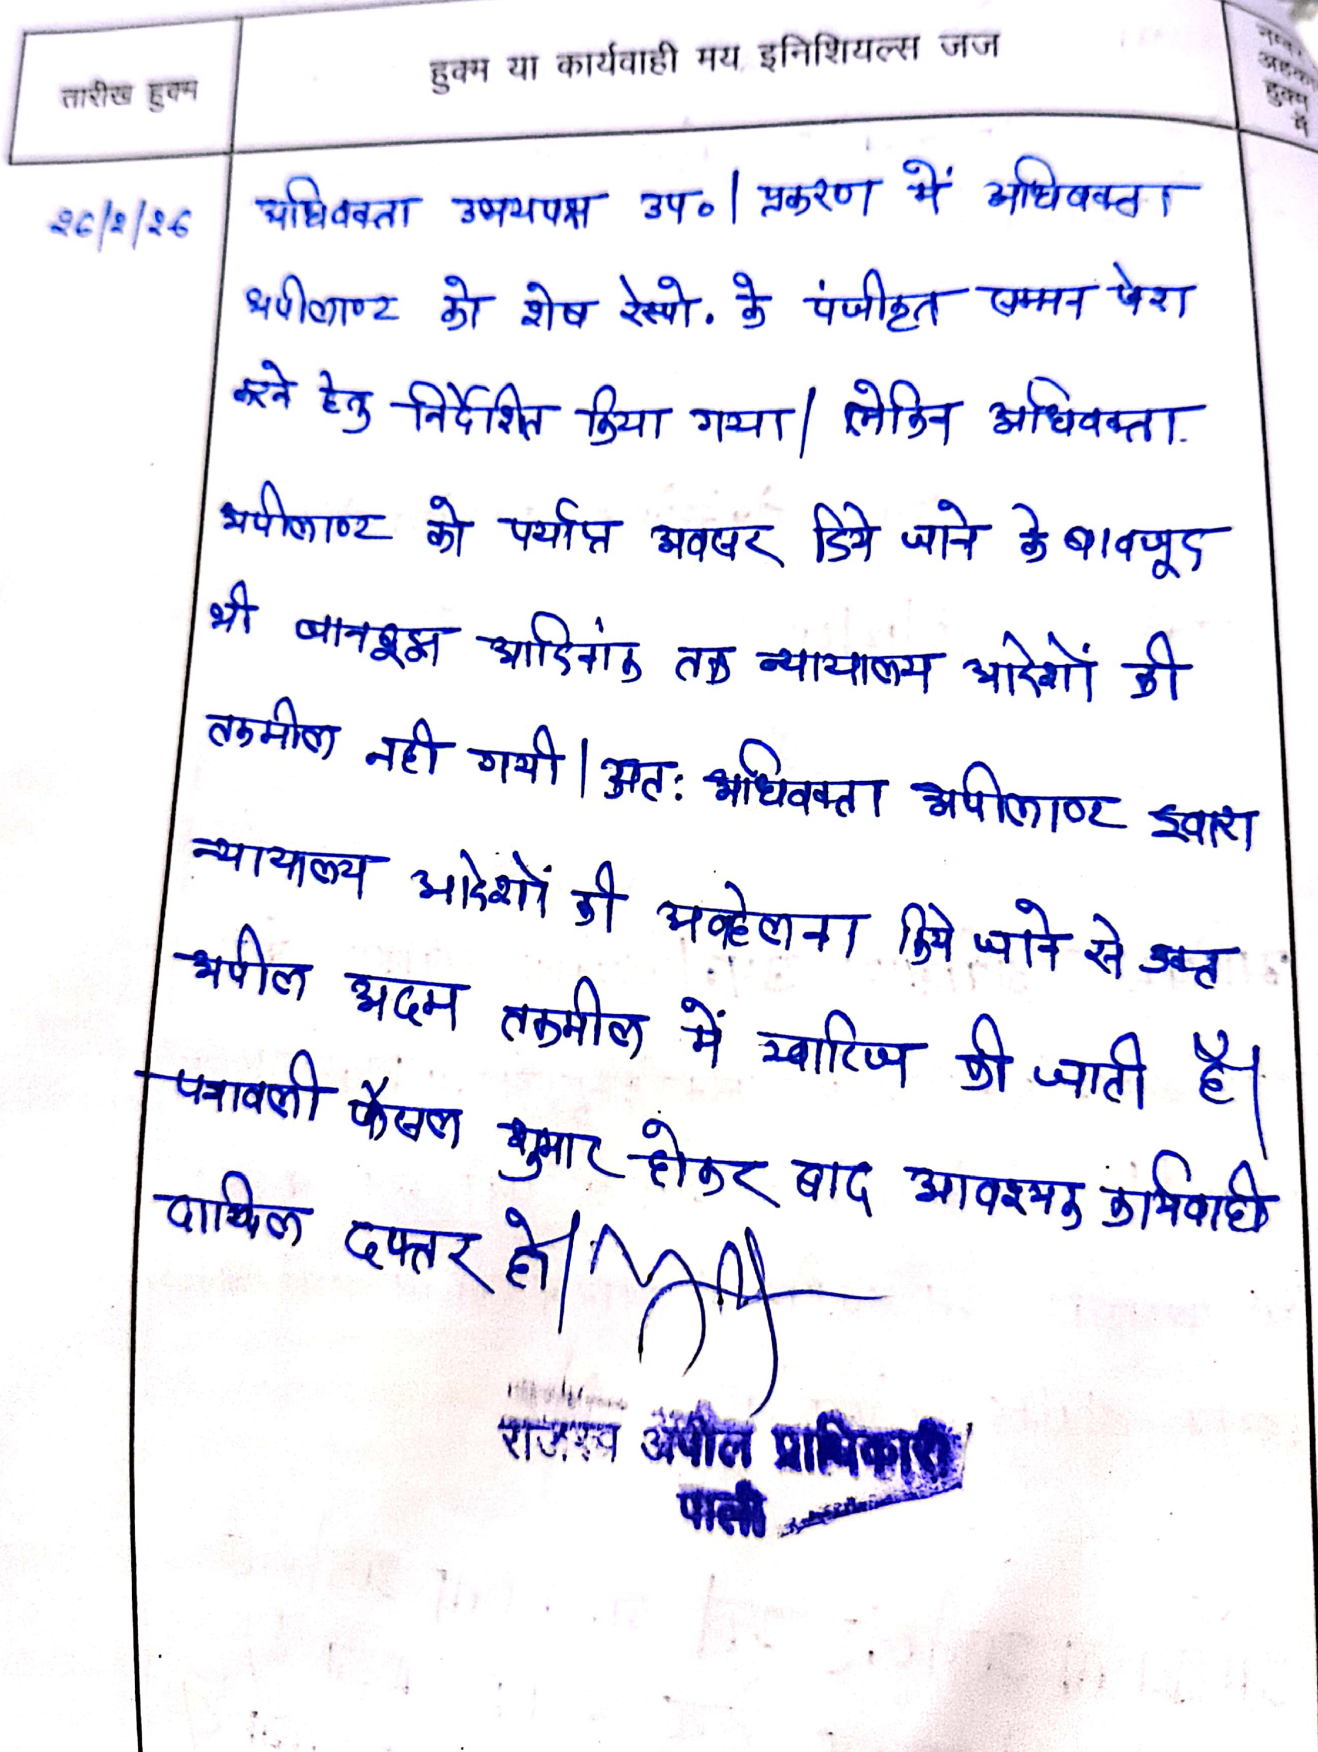 तारीख हुक्म
हुक्म या कार्यवाही मय इनिशियल्स जज
हुक्म
में
26/2/26
अधिवक्ता उभयपक्ष उप०। प्रकरण में अधिवक्ता
अपीलाण्ट को शेष रेस्पो. के पंजीकृत सम्मन पेश
करने हेतु निर्देशित किया गया। लेकिन अधिवक्ता
अपीलाण्ट को पर्याप्त अवसर दिये जाने के बावजूद
भी जानबूझ आदिनांक तक न्यायालय आदेशों की
तकमील नही गयी। अतः अधिवक्ता अपीलाण्ट द्वारा
न्यायालय आदेशों की अवहेलना किये जाने से उक्त
अपील अदम तकमील में खारिज की जाती है।
पत्रावली फैसल शुमार होकर बाद आवश्यक कार्यवाही
दाखिल दफ्तर हो।
राजस्व अपील प्राधिकारी
पाली